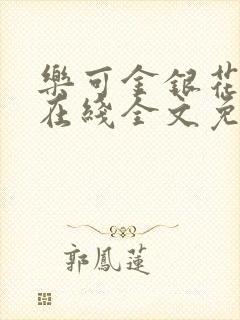 樂可金銀花
在綫全文免
郭鳳蓮